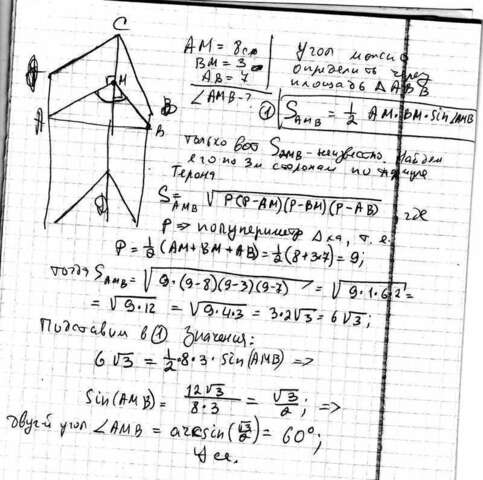 C
M
A
B
B
AM = 8см
BM = 3
AB = 7
∠AMB-?
Угол можно
определить через
площадь Δ
① S_AMB = 1/2 AM·BM·sin∠AMB
только вот S_AMB - неизвестно. Найдем
его по 3м сторонам по формуле
Герона
S_AMB = √P(P-AM)(P-BM)(P-AB), где
P => полупериметр Δ ка, т.е.
P = 1/2 (AM+BM+AB) = 1/2 (8+3+7) = 9;
тогда S_AMB = √9·(9-8)(9-3)(9-7) = √9·1·6·2 =
= √9·12 = √9·4·3 = 3·2√3 = 6√3;
Подставим в ① значения:
6√3 = 1/2·8·3·sin(AMB) =>
sin(AMB) = 12√3/8·3 = √3/2; =>
двугр угол ∠AMB = arcsin(√3/2) = 60°;